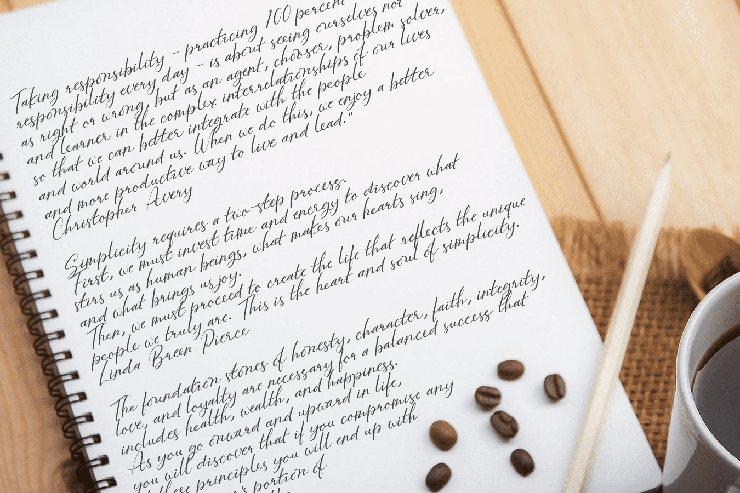 Taking responsibility - practicing 100 percent
responsibility every day - is about seeing ourselves not
as right or wrong, but as an agent, chooser, problem solver,
and learner in the complex interrelationships of our lives
so that we can better integrate with the people
and world around us. When we do this, we enjoy a better
and more productive way to live and lead."
Christopher Avery
Simplicity requires a two-step process.
First, we must invest time and energy to discover what
stirs us as human beings, what makes our hearts sing,
and what brings us joy.
Then, we must proceed to create the life that reflects the unique
people we truly are. This is the heart and soul of simplicity.
Linda Breen Pierce
The foundation stones of honesty, character, faith, integrity,
love, and loyalty are necessary for a balanced success that
includes health, wealth, and happiness.
As you go onward and upward in life,
you will discover that if you compromise any
of these principles you will end up with
portion of